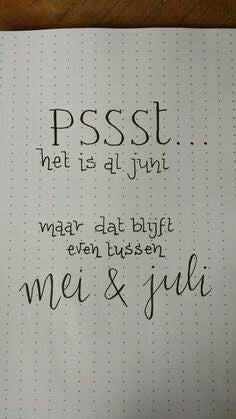 PSSSt...
het is al juni
maar dat blijft
even tussen
mei & juli